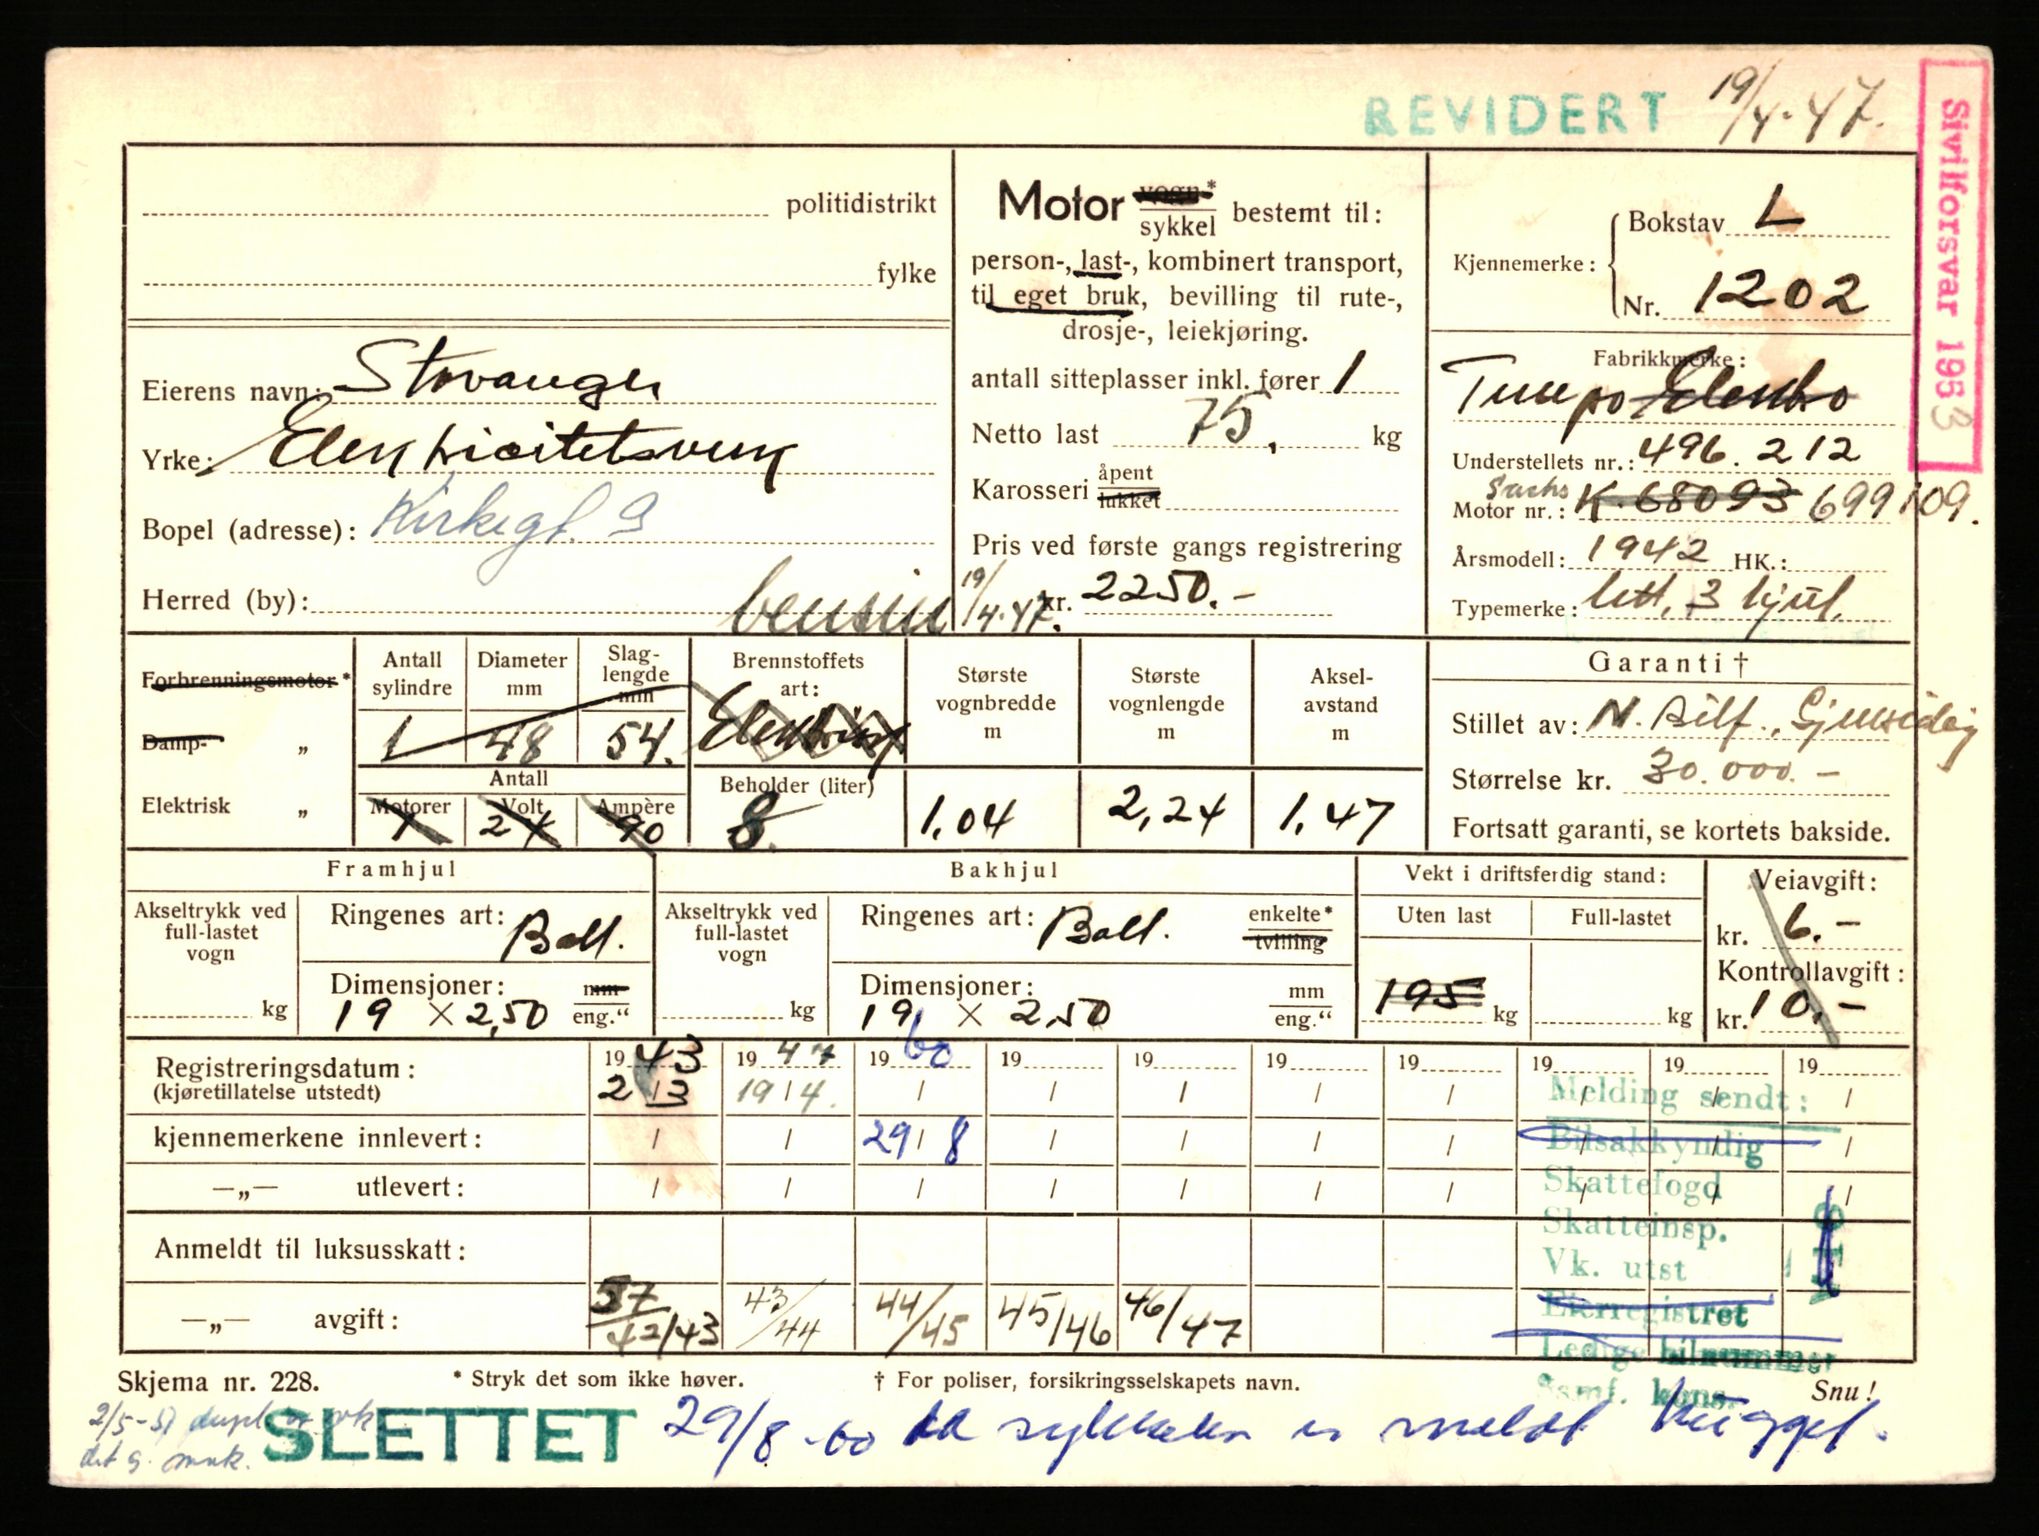 REVIDERT 19/4-47.
Sivilforsvar 1953
politidistrikt
fylke
Eierens navn: Stavanger
Yrke: Elektricitetsverk
Bopel (adresse): Kirkegt. 9
Herred (by):
bensin 19/4.47.
Motor vogn* / sykkel bestemt til:
person-, last-, kombinert transport,
til eget bruk, bevilling til rute-,
drosje-, leiekjøring.
antall sitteplasser inkl. fører 1
Netto last 75, kg
Karosseri åpent / lukket
Pris ved første gangs registrering
kr. 2250.-
Kjennemerke: Bokstav L
Nr. 1202
Fabrikkmerke:
Tempo Elektro
Understellets nr.: 496.212
Sachs
Motor nr.: K 68093 699109.
Årsmodell: 1942 HK.:
Typemerke: lett, 3 hjul.
Forbrenningsmotor*
Damp- „
Elektrisk „
Antall sylindre 1
Diameter mm 48
Slaglengde mm 54.
Antall
Motorer 1
Volt 24
Ampère 90
Brennstoffets art: Elektrisk
Beholder (liter) 8
Største vognbredde m 1,04
Største vognlengde m 2,24
Akselavstand m 1,47
Garanti †
Stillet av: N. Bilf., Gjensidig
Størrelse kr. 30.000.-
Fortsatt garanti, se kortets bakside.
Framhjul
Akseltrykk ved full-lastet vogn kg
Ringenes art: Ball.
Dimensjoner: mm / eng."
19 × 2,50
Bakhjul
Akseltrykk ved full-lastet vogn kg
Ringenes art: Ball. enkelte* / tvilling
Dimensjoner: mm / eng."
19 × 2.50
Vekt i driftsferdig stand:
Uten last 195 kg
Full-lastet kg
Veiavgift:
kr. 6.-
Kontrollavgift:
kr. 10.-
Registreringsdatum: 1943 1947 1960 19 19 19 19 19 19 19
(kjøretillatelse utstedt) 2/3 19/4. / / / / / / / /
kjennemerkene innlevert: / / 29/8 / / / / / / /
—„— utlevert: / / / / / / / / / /
Anmeldt til luksusskatt:
—„— avgift: 57 42/43 43/44 44/45 45/46 46/47
Melding sendt:
Bilsakkyndig
Skattefogd
Skatteinsp.
Vk. utst
Eierregistret
Ledige bilnummer
Samf. kons.
Skjema nr. 228.
* Stryk det som ikke høver.
† For poliser, forsikringsselskapets navn.
Snu!
2/5-51 dupl. av vok
det g. merk.
SLETTET 29/8-60 da sykkelen er meldt hugget.